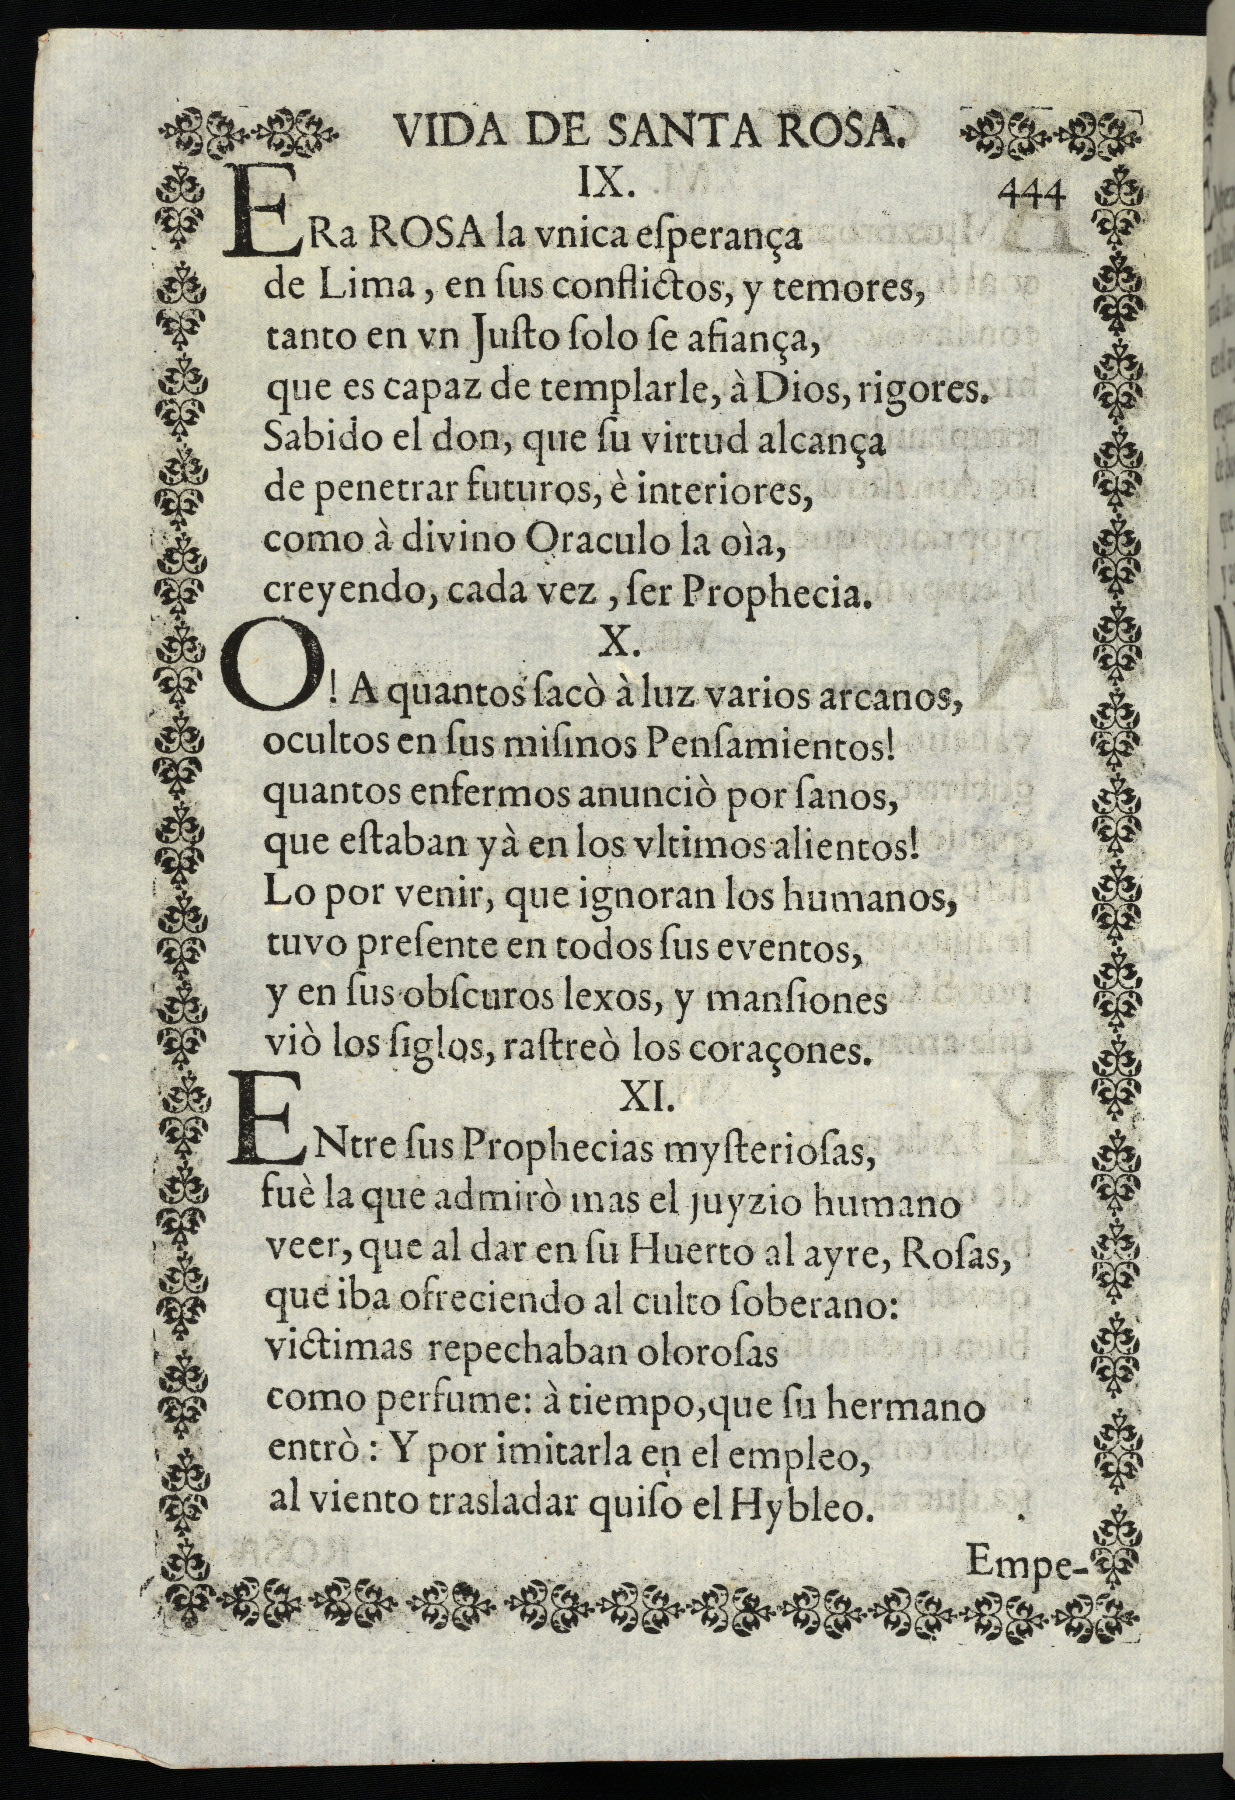 VIDA DE SANTA ROSA.
IX.
444
ERa ROSA la vnica eſperança
de Lima, en ſus conflictos, y temores,
tanto en vn Juſto ſolo ſe afiança,
que es capaz de templarle, à Dios, rigores.
Sabido el don, que ſu virtud alcança
de penetrar futuros, è interiores,
como à divino Oraculo la oìa,
creyendo, cada vez, ſer Prophecia.
X.
O! A quantos ſacò à luz varios arcanos,
ocultos en ſus miſmos Penſamientos!
quantos enfermos anunciò por ſanos,
que eſtaban yà en los vltimos alientos!
Lo por venir, que ignoran los humanos,
tuvo preſente en todos ſus eventos,
y en ſus obſcuros lexos, y manſiones
viò los ſiglos, raſtreò los coraçones.
XI.
ENtre ſus Prophecias myſterioſas,
fuè la que admirò mas el juyzio humano
veer, que al dar en ſu Huerto al ayre, Roſas,
que iba ofreciendo al culto ſoberano:
victimas repechaban oloroſas
como perfume: à tiempo, que ſu hermano
entrò: Y por imitarla en el empleo,
al viento trasladar quiſo el Hybleo.
Empe-